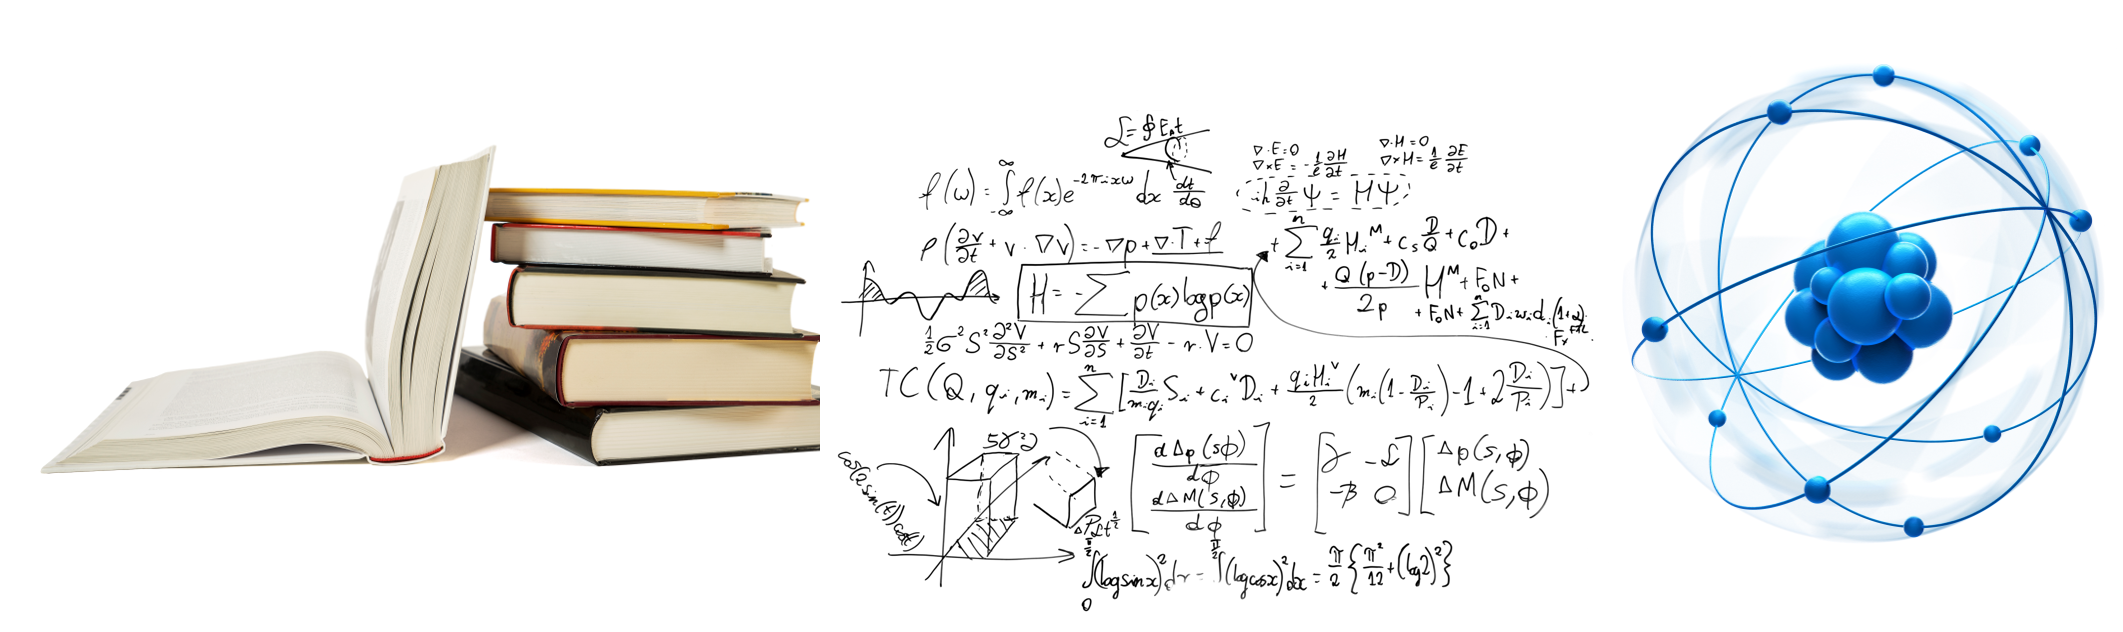 ℒ = ∮ E_p t
∇·E=0    ∇·H=0
∇×E = -1/c ∂H/∂t    ∇×H = 1/c ∂E/∂t
f(ω) = ∫_{-∞}^{∞} f(x)e^{-2πixω} dx  dt/dθ
iħ ∂/∂t Ψ = HΨ
ρ(∂v/∂t + v·∇v) = -∇p + ∇·T + f
+ ∑_{i=1}^{n} q_i/2 H_i^M + c_s D/Q + c_o D +
+ Q(p-D)/2p H^M + F_o N +
+ F_o N + ∑_{i=1}^{n} D_i w_i d_i
H = -∑ p(x) log p(x)
1/2 σ² S² ∂²V/∂S² + r S ∂V/∂S + ∂V/∂t - r·V = 0
TC(Q, q_i, m_i) = ∑_{i=1}^{n} [D_i/(m_i q_i) S_i + c_i^v D_i + q_i H_i^v/2 (m_i(1 - D_i/P_i) - 1 + 2 D_i/P_i)] +
[dΔp(sϕ)/dϕ ; dΔM(s,ϕ)/dϕ] = [γ -ℒ ; -β 0] [Δp(s,ϕ) ; ΔM(s,ϕ)]
∫_0^{π/2} (log sin x)² dx = ∫^{π/2} (log cos x)² dx = π/2 {π²/12 + (log 2)²}